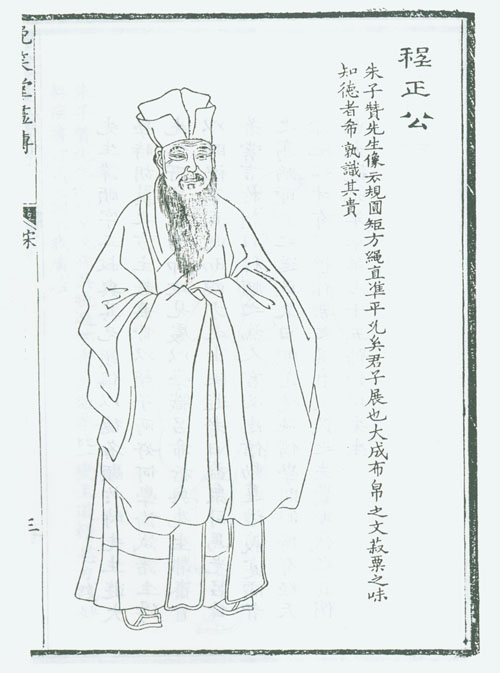 程正公
朱子贊先生像云規圓矩方繩直準平允矣君子展也大成布帛之文菽粟之味
知德者希孰識其貴
晚笑堂畫傳
宋
三